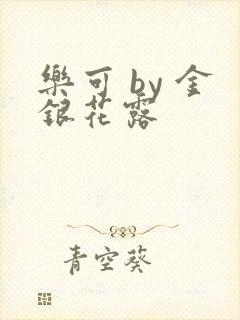 樂可 by 金
銀花露
青空葵